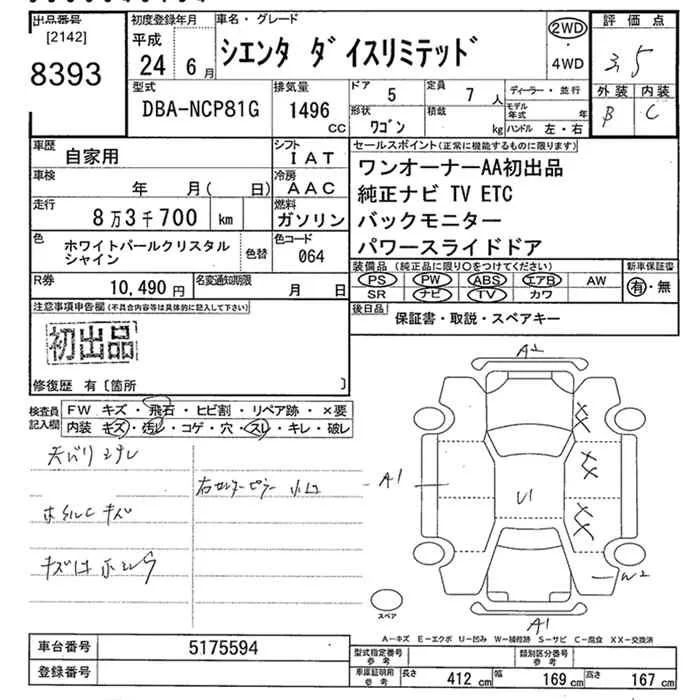 出品番号 初度登録年月 車名・グレード 2WD 評価点
[2142] 平成 シエンタ ダイスリミテッド ・4WD 3.5
8393 24年 6月 外装 内装
B C
型式 排気量 ドア 5 定員 7人 ディーラー・並行
DBA-NCP81G 1496cc 形状 ワゴン 積載 kg モデル年式 年
ハンドル 左・右
車歴 自家用 シフト IAT セールスポイント(正常に機能するものに限ります)
車検 年 月( 日) 冷房 AAC ワンオーナーAA初出品
走行 8万3千700 km 燃料 ガソリン 純正ナビ TV ETC
バックモニター
パワースライドドア
色 ホワイトパールクリスタルシャイン 色替 色コード 064
装備品(純正品に限り○をつけてください) 新車保証書
PS PW ABS エアB AW 有・無
SR ナビ TV カワ
R券 10,490円 名変通知期限 月 日
後日品 保証書・取説・スペアキー
注意事項申告欄(不具合内容等は具体的に記入して下さい)
初出品
修復歴 有〔箇所 〕
検査員記入欄 FW キズ・飛石・ヒビ割・リペア跡・×要
内装 キズ・汚レ・コゲ・穴・スレ・キレ・破レ
天バリ ヨゴレ
右センターピラー 小凹
キズ
A2
XX
XX
XX
A1
U1
W2
A1
スペア
A-キズ E-エクボ U-凹み W-補修跡 S-サビ C-腐食 XX-交換済
車台番号 5175594
登録番号
型式指定番号 参考 類別区分番号 参考
車庫証明用 参考 長さ 412cm 幅 169cm 高さ 167cm